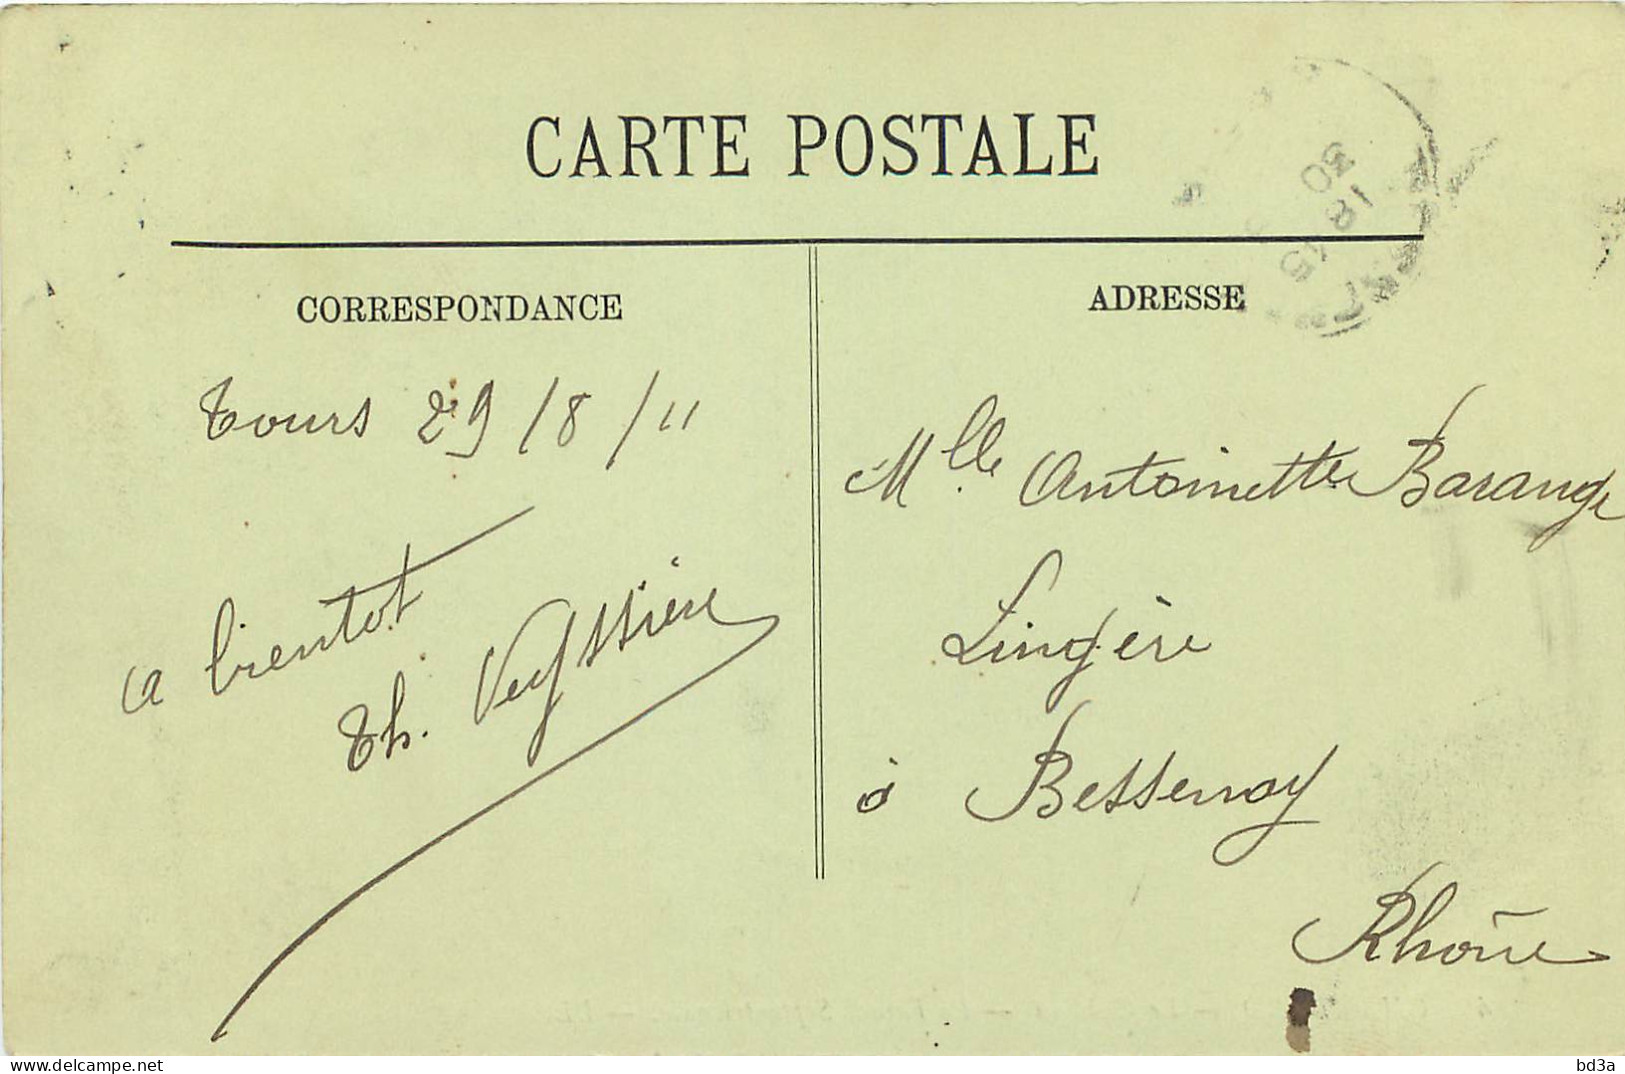 CARTE POSTALE
30
18 15
CORRESPONDANCE
Tours 29/8/11
a bientot
Th. Veyssière
ADRESSE
Mlle Antoinette Barange
Lingère
à Bessenay
Rhône
bd3a